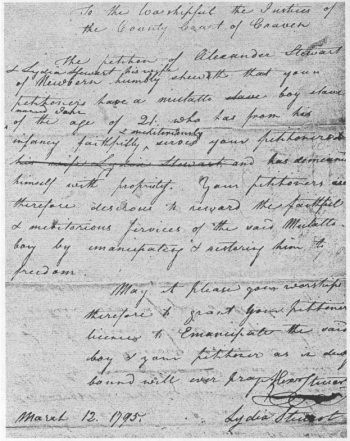 To the Worshipful the Justices of
the County Court of Craven
The petition of Alexander Stewart
& Lydia Stewart his wife
of Newbern humbly sheweth that your
petitioners have a mulatto slave boy slave
named
of the age of 21. who has from his
& meritoriously
infancy faithfully served your petitioners
his wife Lydia Stewart and has demeaned
himself with propriety. Your petitioners are
therefore desirous to reward the faithful
& meritorious services of the said Mulatto
boy by emancipating & restoring him to
freedom.
May it please your worships
therefore to grant your petitioners
license to Emancipate the said
boy & your petitioner as in duty
bound will ever pray
March 12. 1795.
Lydia Stewart